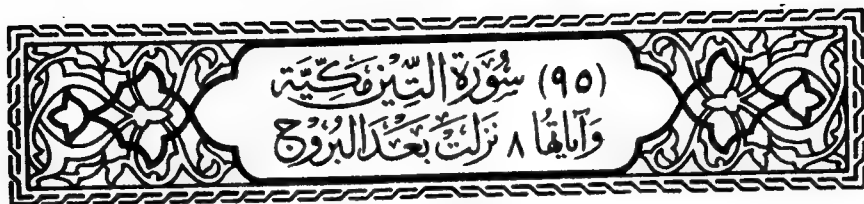 (٩٥) سُورَة التِّين مَكِّيَّة
وَآيَاتُهَا ٨ نَزَلَتْ بَعْدَ البُرُوج